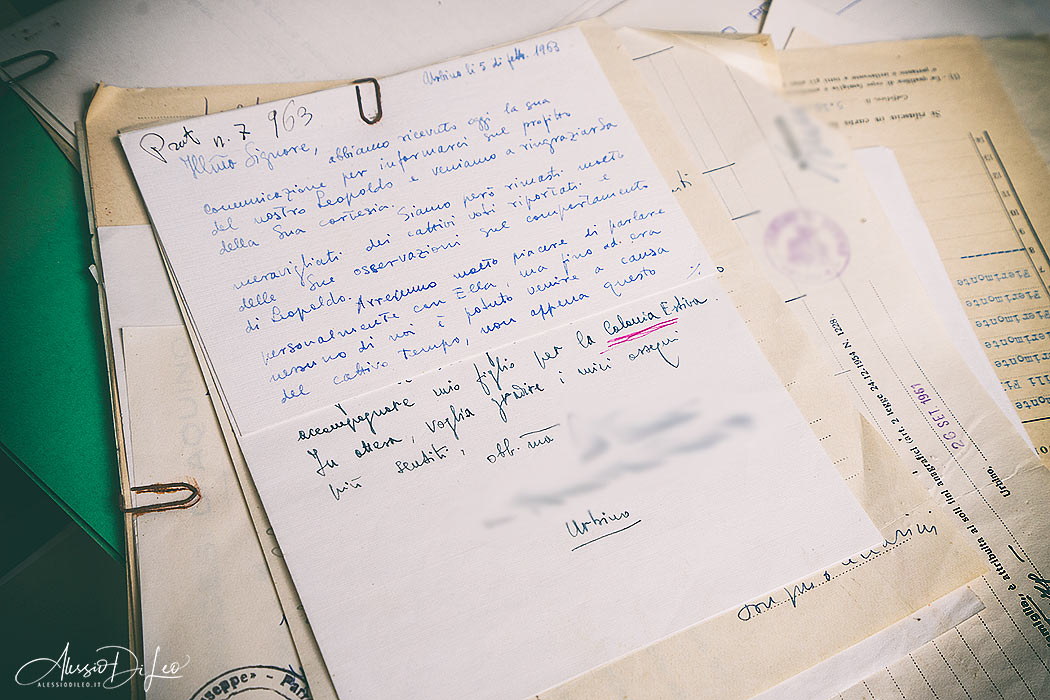 Urbino li 5 di febb. 1963
Prot n. 7 963
Ill.mo Signore,
abbiamo ricevuto oggi la sua
comunicazione per informarci sul profitto
del nostro Leopoldo e veniamo a ringraziarLa
della Sua cortesia.
Siamo però rimasti molto
meravigliati dei cattivi voti riportati e
delle Sue osservazioni sul comportamento
di Leopoldo. Avremmo molto piacere di parlare
personalmente con Ella, ma fino ad ora
nessuno di noi è potuto venire a causa
del cattivo tempo, non appena questo %
accompagnare mio figlio per la Colonia Estiva.
In attesa, voglia gradire i miei ossequi
più sentiti, obb.ma
Urbino
Si rilascia in carta
Pierimonte
Pierimonte
Pierimonte
Pierimonte
26 SET 1961
Urbino,
è attribuita ai soli fini anagrafici (art. 2 legge 24-12-1954 N. 1228).
Alessio Di Leo
ALESSIODILEO.IT